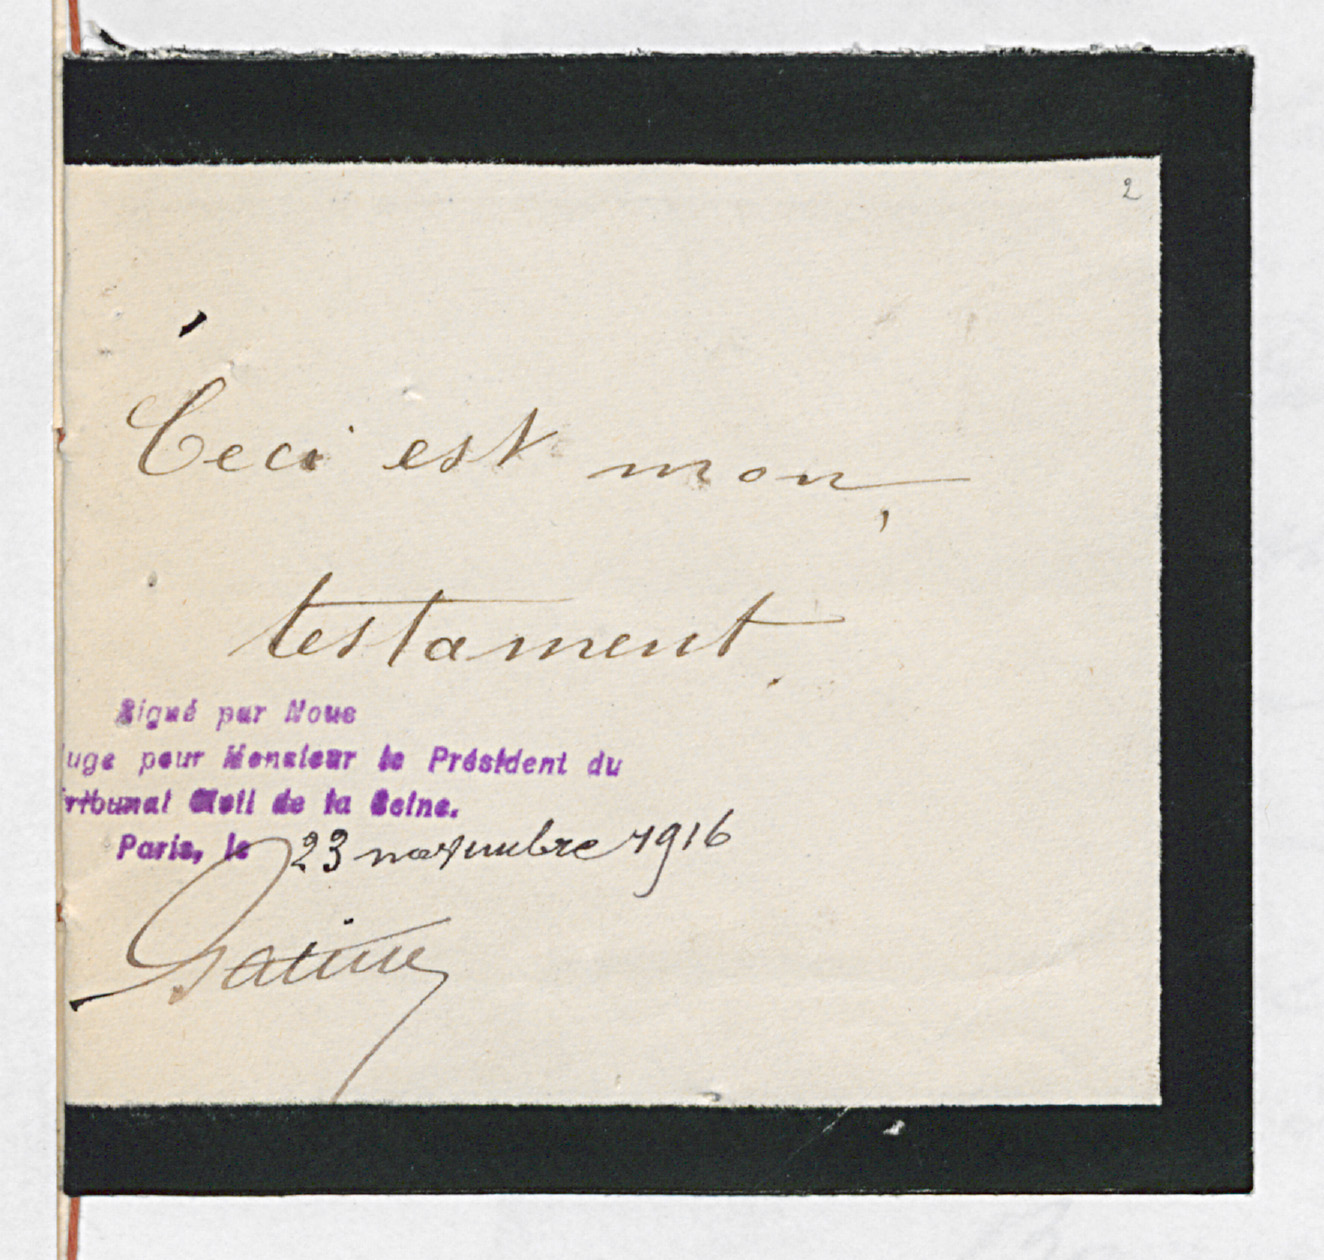 2
Ceci est mon
testament.
Signé par Nous
Juge pour Monsieur le Président du
Tribunal Civil de la Seine.
Paris, le 23 novembre 1916